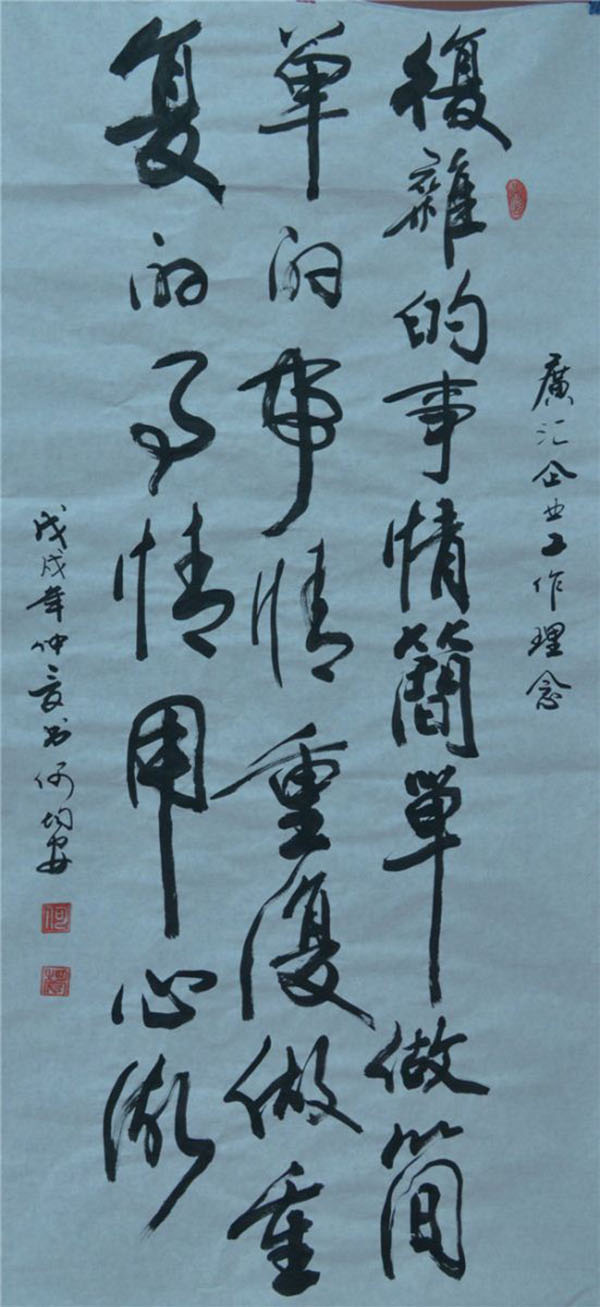 廣汇企业工作理念
復雜的事情簡單做简
单的事情重復做重
复的事情用心做
戊戌年仲夏书何